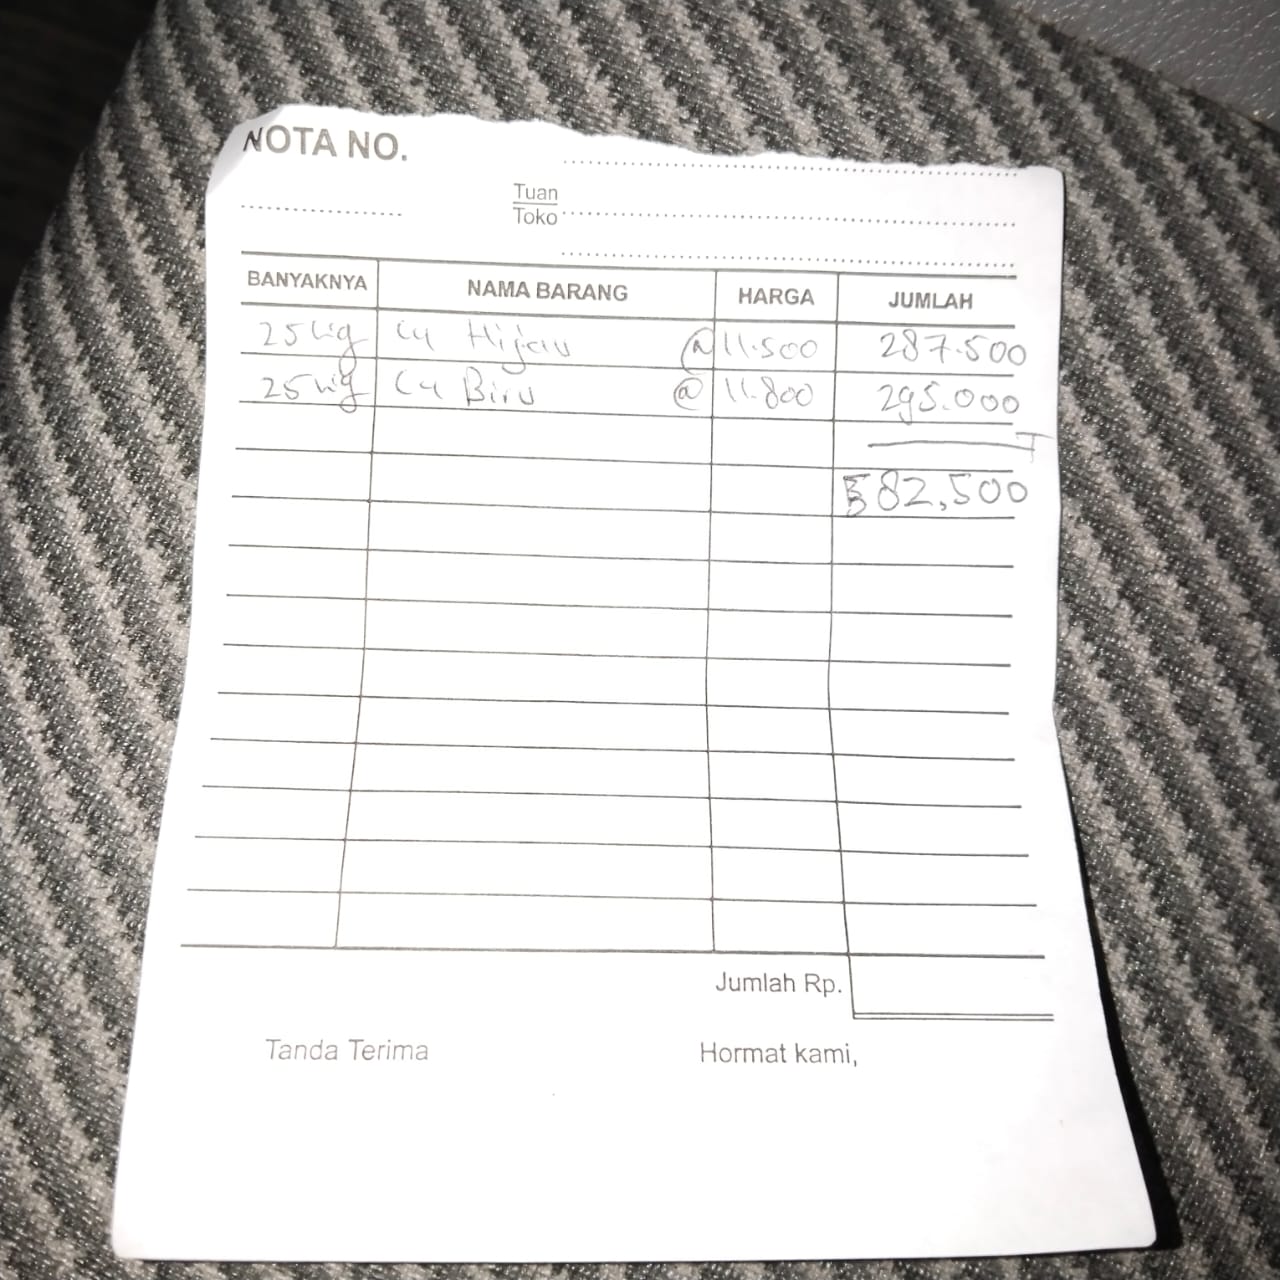 NOTA NO.
Tuan
Toko
BANYAKNYA NAMA BARANG HARGA JUMLAH
25 kg Cu Hijau @ 11.500 287.500
25 kg Cu Biru @ 11.800 295.000
582,500
Jumlah Rp.
Tanda Terima Hormat kami,